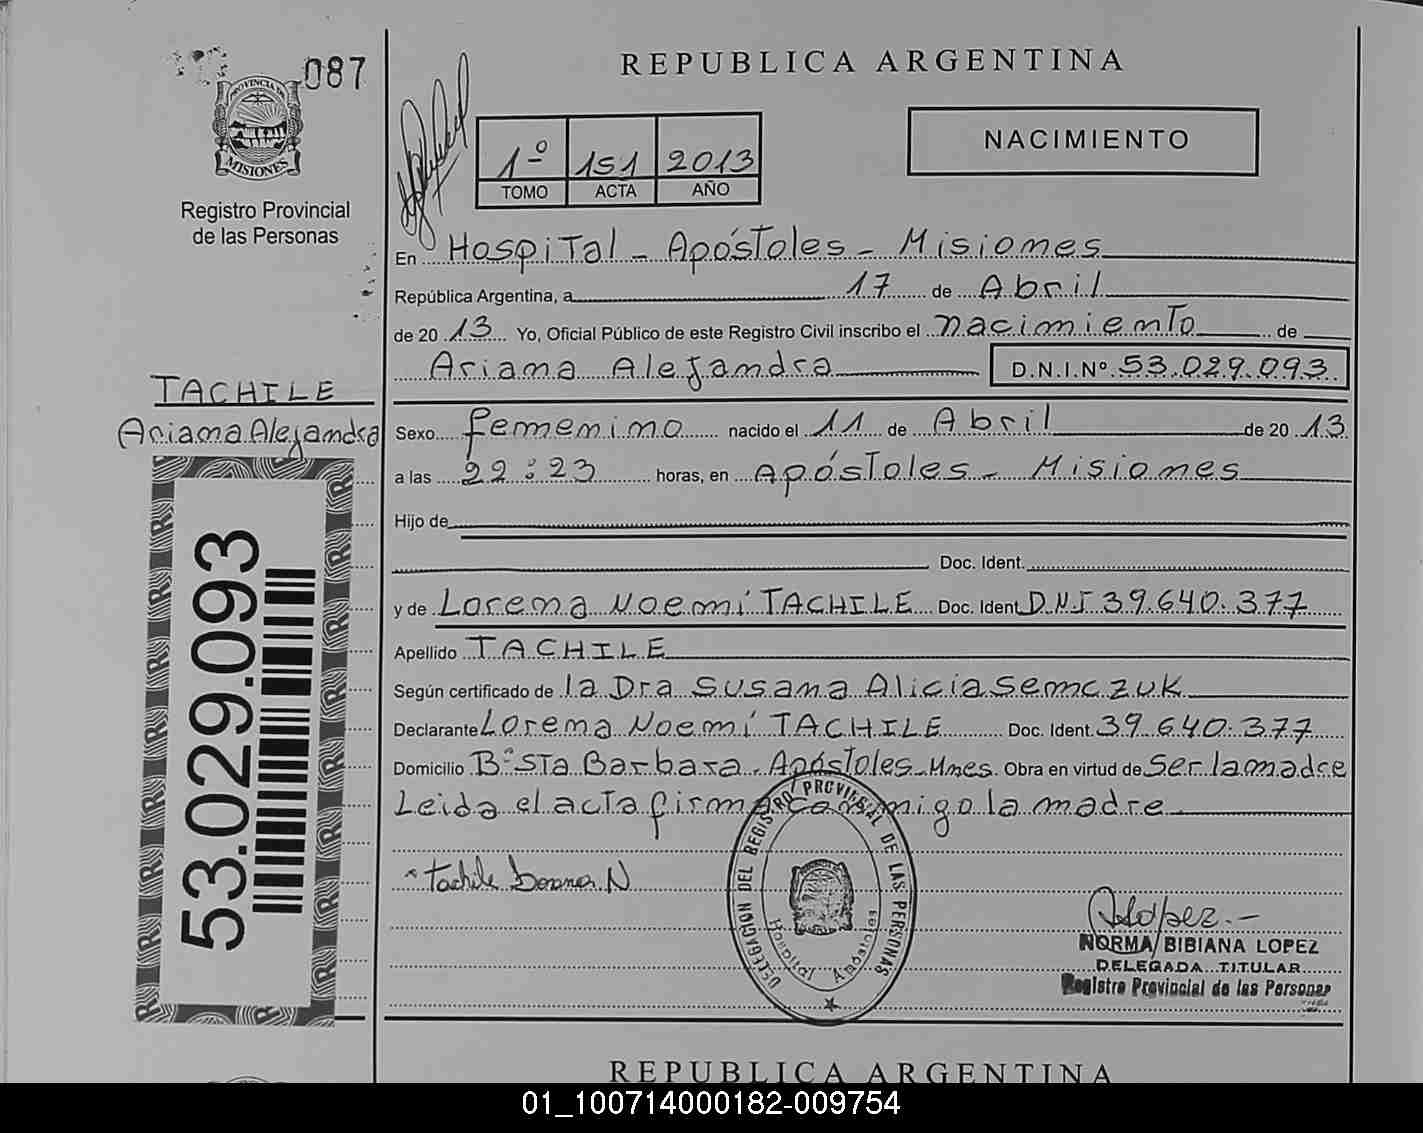 087
PROVINCIA DE
MISIONES
Registro Provincial
de las Personas
REPUBLICA ARGENTINA
1º 151 2013
TOMO ACTA AÑO
NACIMIENTO
En Hospital - Apóstoles - Misiones
República Argentina, a 17 de Abril
de 20 13 Yo, Oficial Público de este Registro Civil inscribo el nacimiento de
Ariana Alejandra D.N.I.Nº 53.029.093
TACHILE
Ariana Alejandra
Sexo femenino nacido el 11 de Abril de 20 13
a las 22:23 horas, en Apóstoles - Misiones
Hijo de
Doc. Ident.
y de Lorena Noemí TACHILE Doc. Ident D.N.I 39.640.377
Apellido TACHILE
Según certificado de la Dra Susana Alicia Semczuk
Declarante Lorena Noemí TACHILE Doc. Ident. 39.640.377
Domicilio Bº Sta Barbara - Apóstoles - Mnes. Obra en virtud de Ser la madre
Leida el acta firma conmigo la madre
53.029.093
Tachile Lorena N
DELEGACION DEL REGISTRO PROVINCIAL DE LAS PERSONAS
Hospital Apóstoles
NORMA BIBIANA LOPEZ
DELEGADA TITULAR
Registro Provincial de las Personas
REPUBLICA ARGENTINA
01_100714000182-009754